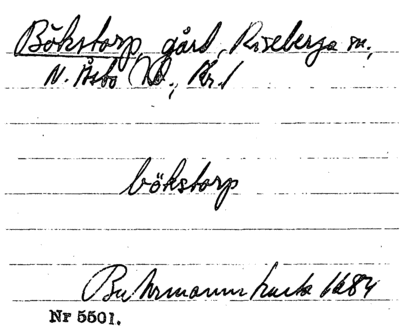 Bökstorp, gård, Riseberga sn,
N. Åsbo hd, Kr. l
bökstorp
Buhrmanns karta 1684
Nr 5501.